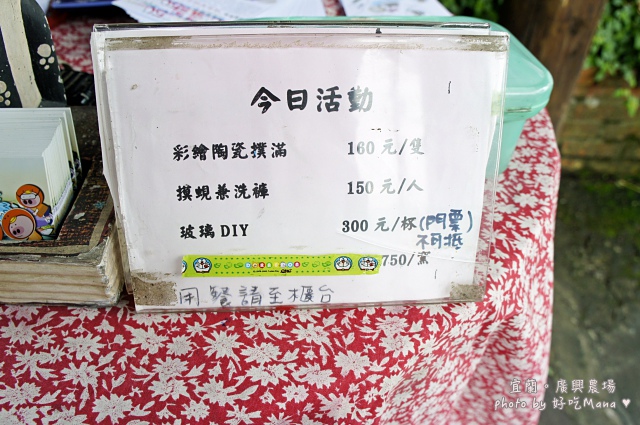 今日活動
彩繪陶瓷撲滿 160元/隻
摸蜆兼洗褲 150元/人
玻璃DIY 300元/杯(門票
不可抵)
750/窯
用餐請至櫃台
宜蘭。廣興農場
photo by 好吃Mana ♥